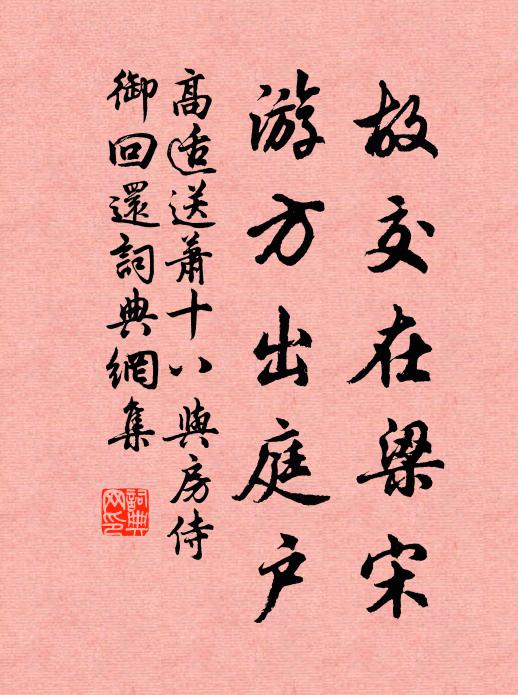 故交在梁宋
游方出庭户
高适送萧十八與房侍
御回還詞典網集
詞典
网印